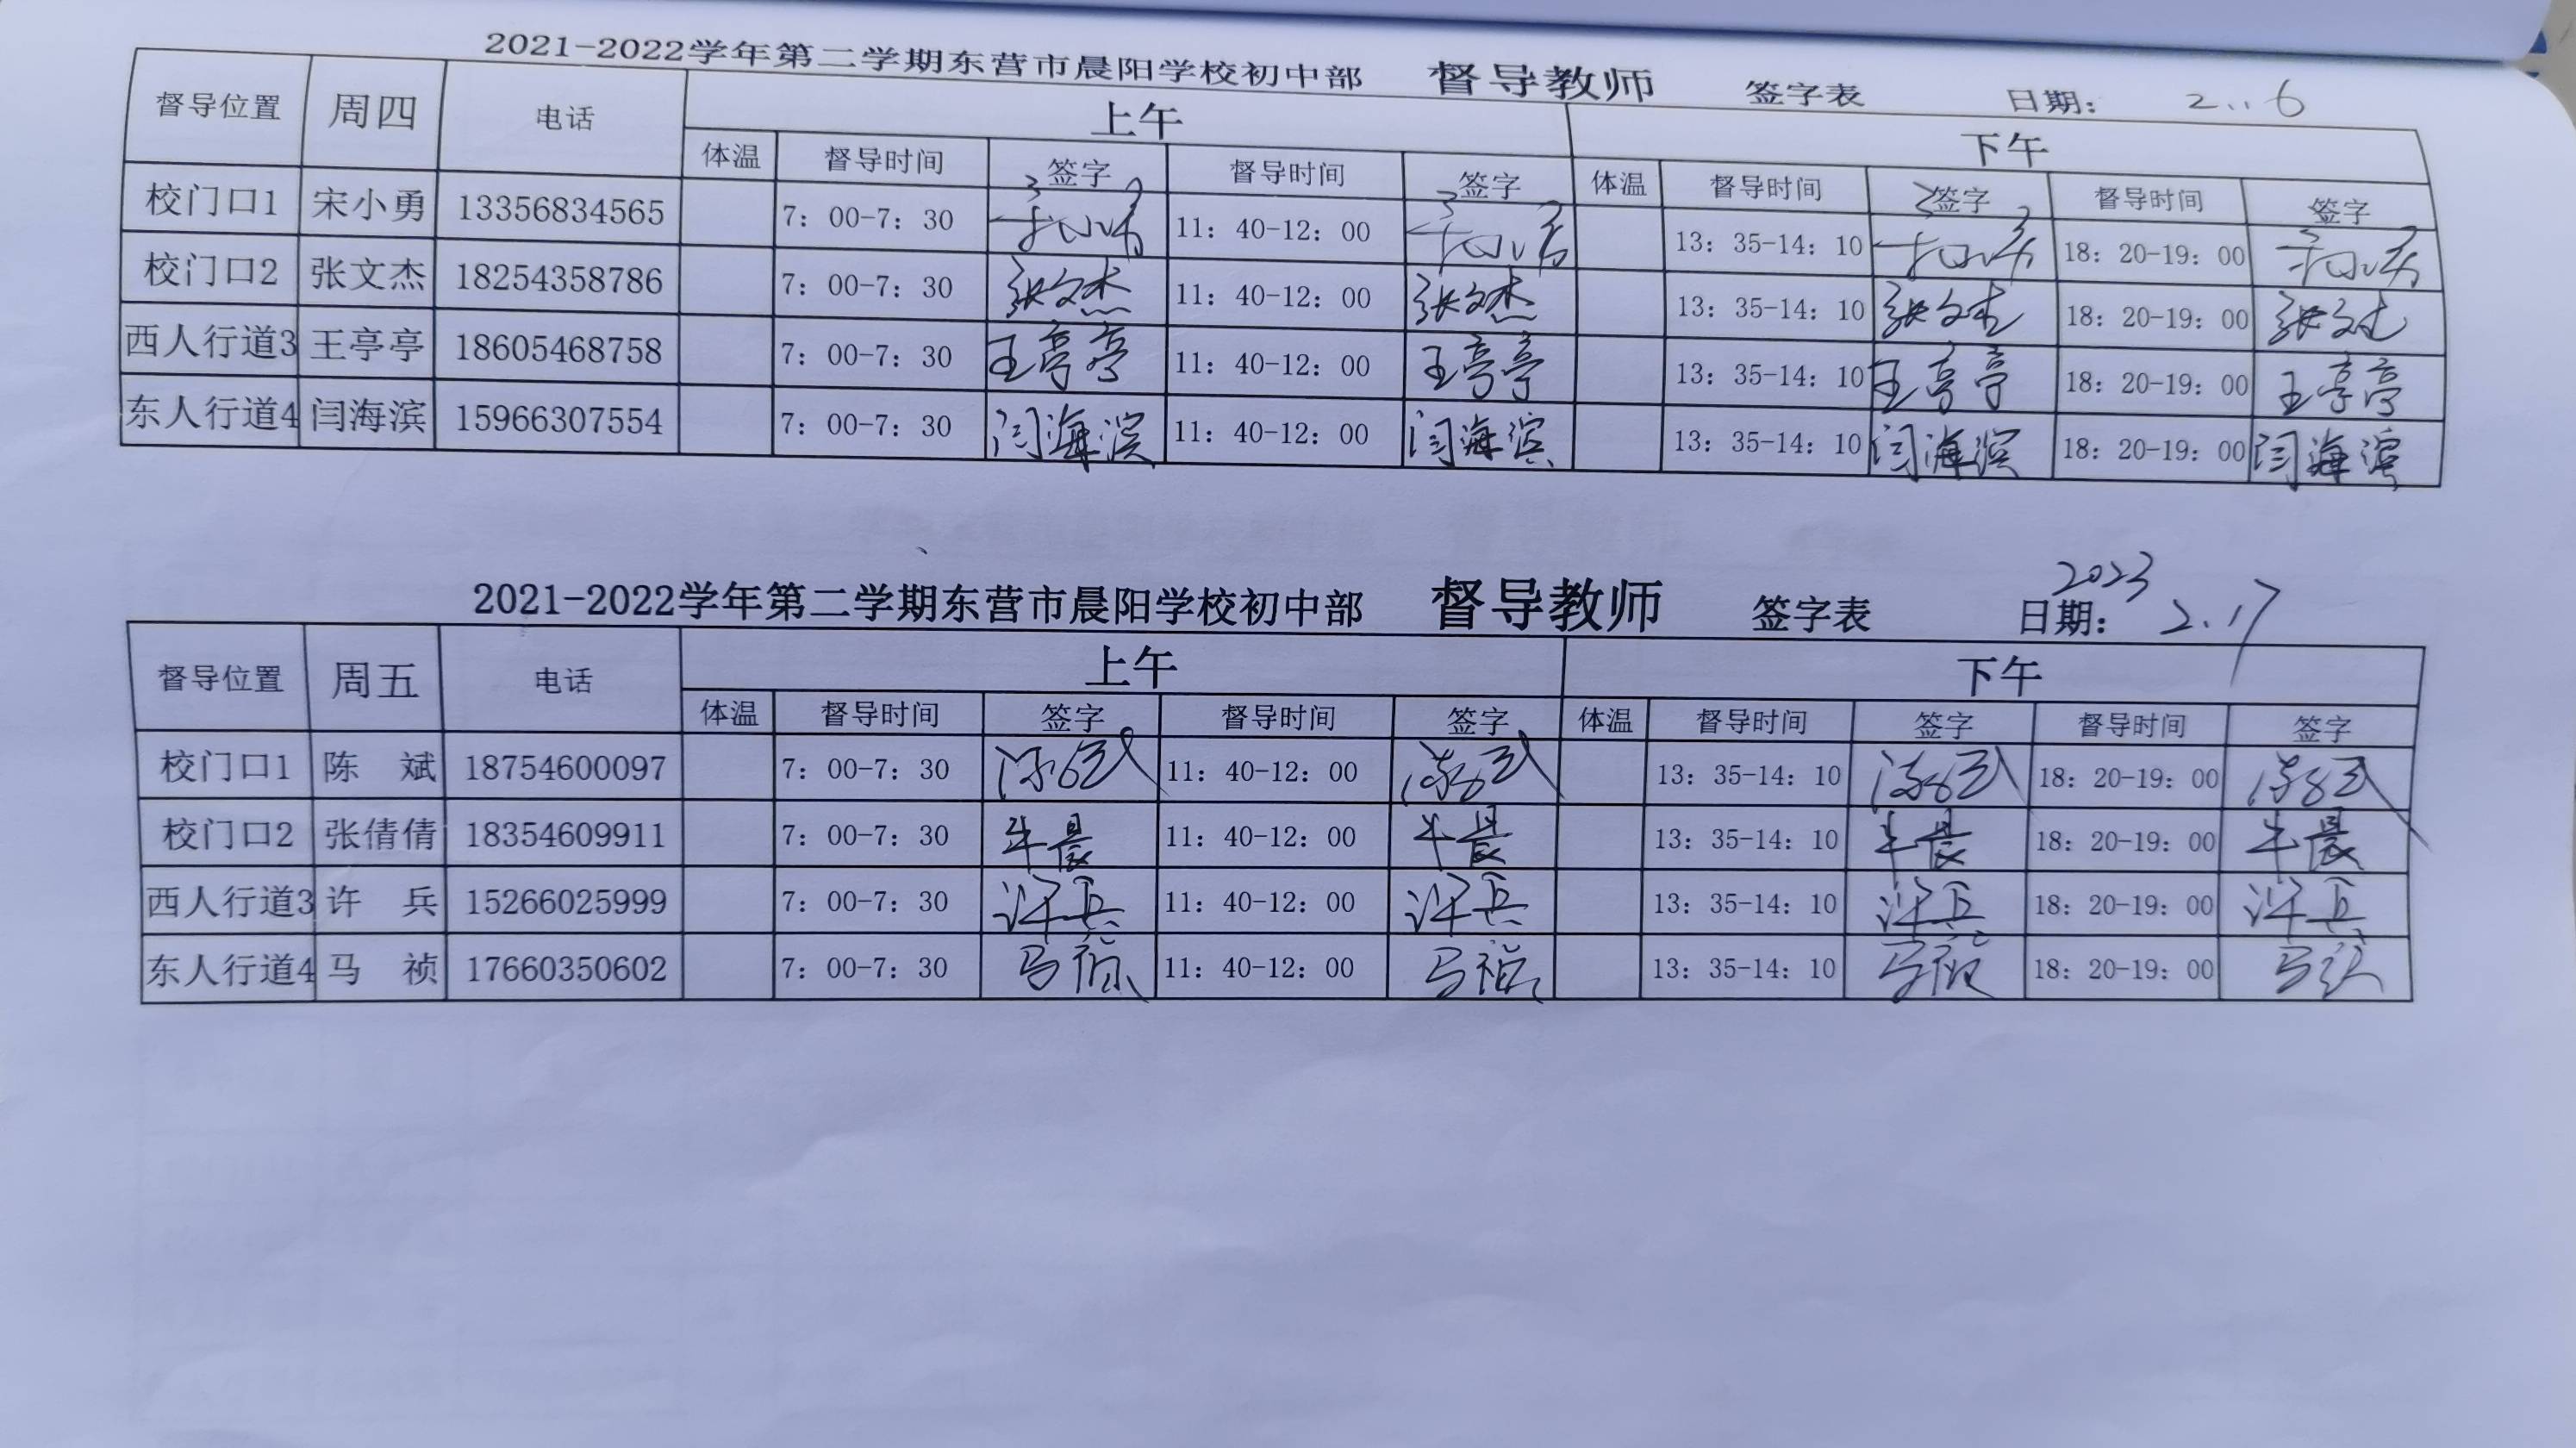 2021-2022学年第二学期东营市晨阳学校初中部 督导教师 签字表 日期: 2..16
督导位置 周四 电话 上午 下午
体温 督导时间 签字 督导时间 签字 体温 督导时间 签字 督导时间 签字
校门口1 宋小勇 13356834565 7: 00-7: 30 11: 40-12: 00 13: 35-14: 10 18: 20-19: 00
校门口2 张文杰 18254358786 7: 00-7: 30 张文杰 11: 40-12: 00 张文杰 13: 35-14: 10 张文杰 18: 20-19: 00 张文杰
西人行道3 王亭亭 18605468758 7: 00-7: 30 王亭亭 11: 40-12: 00 王亭亭 13: 35-14: 10 王亭亭 18: 20-19: 00 王亭亭
东人行道4 闫海滨 15966307554 7: 00-7: 30 闫海滨 11: 40-12: 00 闫海滨 13: 35-14: 10 闫海滨 18: 20-19: 00 闫海滨
2021-2022学年第二学期东营市晨阳学校初中部 督导教师 签字表 日期: 2023 2.17
督导位置 周五 电话 上午 下午
体温 督导时间 签字 督导时间 签字 体温 督导时间 签字 督导时间 签字
校门口1 陈 斌 18754600097 7: 00-7: 30 陈斌 11: 40-12: 00 陈斌 13: 35-14: 10 陈斌 18: 20-19: 00 陈斌
校门口2 张倩倩 18354609911 7: 00-7: 30 牛晨 11: 40-12: 00 牛晨 13: 35-14: 10 牛晨 18: 20-19: 00 牛晨
西人行道3 许 兵 15266025999 7: 00-7: 30 许兵 11: 40-12: 00 许兵 13: 35-14: 10 许兵 18: 20-19: 00 许兵
东人行道4 马 祯 17660350602 7: 00-7: 30 马祯 11: 40-12: 00 马祯 13: 35-14: 10 马祯 18: 20-19: 00 马祯